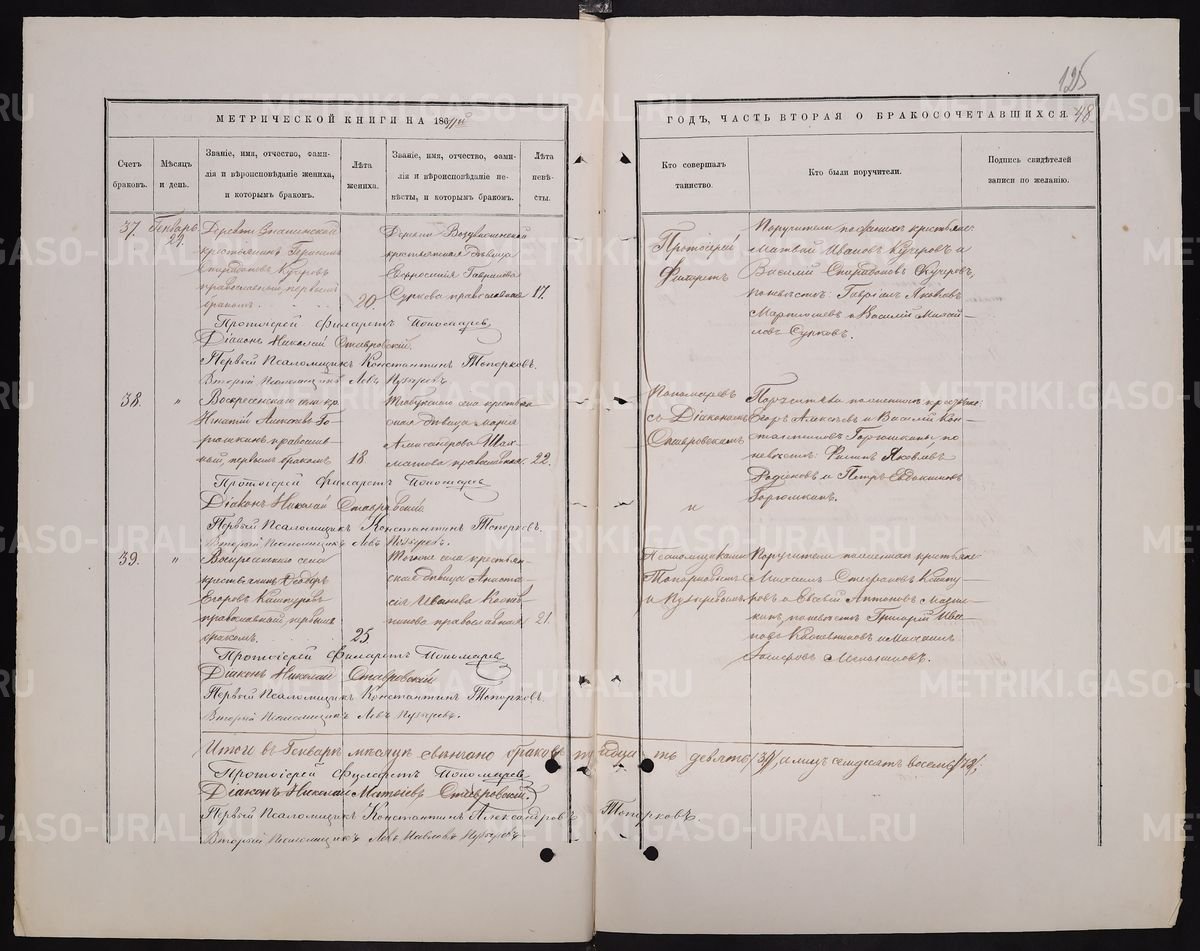 125
МЕТРИЧЕСКОЙ КНИГИ НА 186
ГОДЪ, ЧАСТЬ ВТОРАЯ О БРАКОСОЧЕТАВШИХСЯ. 48
Счетъ браковъ.
Мѣсяцъ и день.
Званіе, имя, отчество, фами-
лія и вѣроисповѣданіе жениха,
и которымъ бракомъ.
Лѣта жениха.
Званіе, имя, отчество, фами-
лія и вѣроисповѣданіе не-
вѣсты, и которымъ бракомъ.
Лѣта невѣ-
сты.
Кто совершалъ
таинство.
Кто были поручители.
Подпись свидѣтелей
записи по желанію.
37. Генварь 29.
Деревни
крестьянинъ Герасимъ
Кучеровъ
православный, первымъ
бракомъ. 20.
Деревни
крестьянская дѣвица
Евфросинія Гаврилова
Суркова православная 17.
Протоіерей
Филаретъ
Поручители по женихѣ крестьяне
Матвей Ивановъ Кучеровъ и
Василій Кучеровъ,
по невѣстѣ: Гавріилъ Яковлевъ
и Василій Михай-
ловъ Сурковъ.
Протоіерей Филаретъ Пономаревъ
Діаконъ Николай Ставровскій.
Первый Псаломщикъ Константинъ Топорковъ.
Второй Псаломщикъ Левъ Пузыревъ
38. "
Воскресенскаго села кр.
Игнатій Алексѣевъ Го-
ришкинъ православ-
ный, первымъ бракомъ 18.
села крестьян-
ская дѣвица Марія
Александрова Шал-
матова православная. 22.
Пономаревъ
съ Діакономъ
Ставровскимъ
и
по женихѣ крестьяне:
Егоръ Алексѣевъ и Василій Кон-
стантиновъ по
невѣстѣ: Филипъ Яковлевъ
и Петръ Евдокимовъ
Протоіерей Филаретъ Пономаревъ
Діаконъ Николай Ставровскій
Первый Псаломщикъ Константинъ Топорковъ.
Второй Псаломщикъ Левъ Пузыревъ.
39. "
Воскресенскаго села
крестьянинъ Ѳедоръ
Егоровъ
православный, первымъ
бракомъ. 25.
Тогоже села крестьян-
ская дѣвица Анаста-
сія Иванова
православная 21.
Псаломщиками
Топорковымъ
и Пузыревымъ.
Поручители по женихѣ крестьяне
Михаилъ Стефановъ
и Евсевій Антоновъ
по невѣстѣ Григорій Ива-
новъ и Михаилъ
Протоіерей Филаретъ Пономаревъ
Діаконъ Николай Ставровскій
Первый Псаломщикъ Константинъ Топорковъ.
Второй Псаломщикъ Левъ Пузыревъ.
Итого въ Генварѣ мѣсяцѣ свѣнчано браковъ тридцать девять /39/, а лицъ семдесятъ восемь /78/.
Протоіерей Филаретъ Пономаревъ
Діаконъ Николай Матѳіевъ Ставровскій.
Первый Псаломщикъ Константинъ Александровъ Топорковъ.
Второй Псаломщикъ Левъ Павловъ Пузыревъ
METRIKI.GASO-URAL.RU